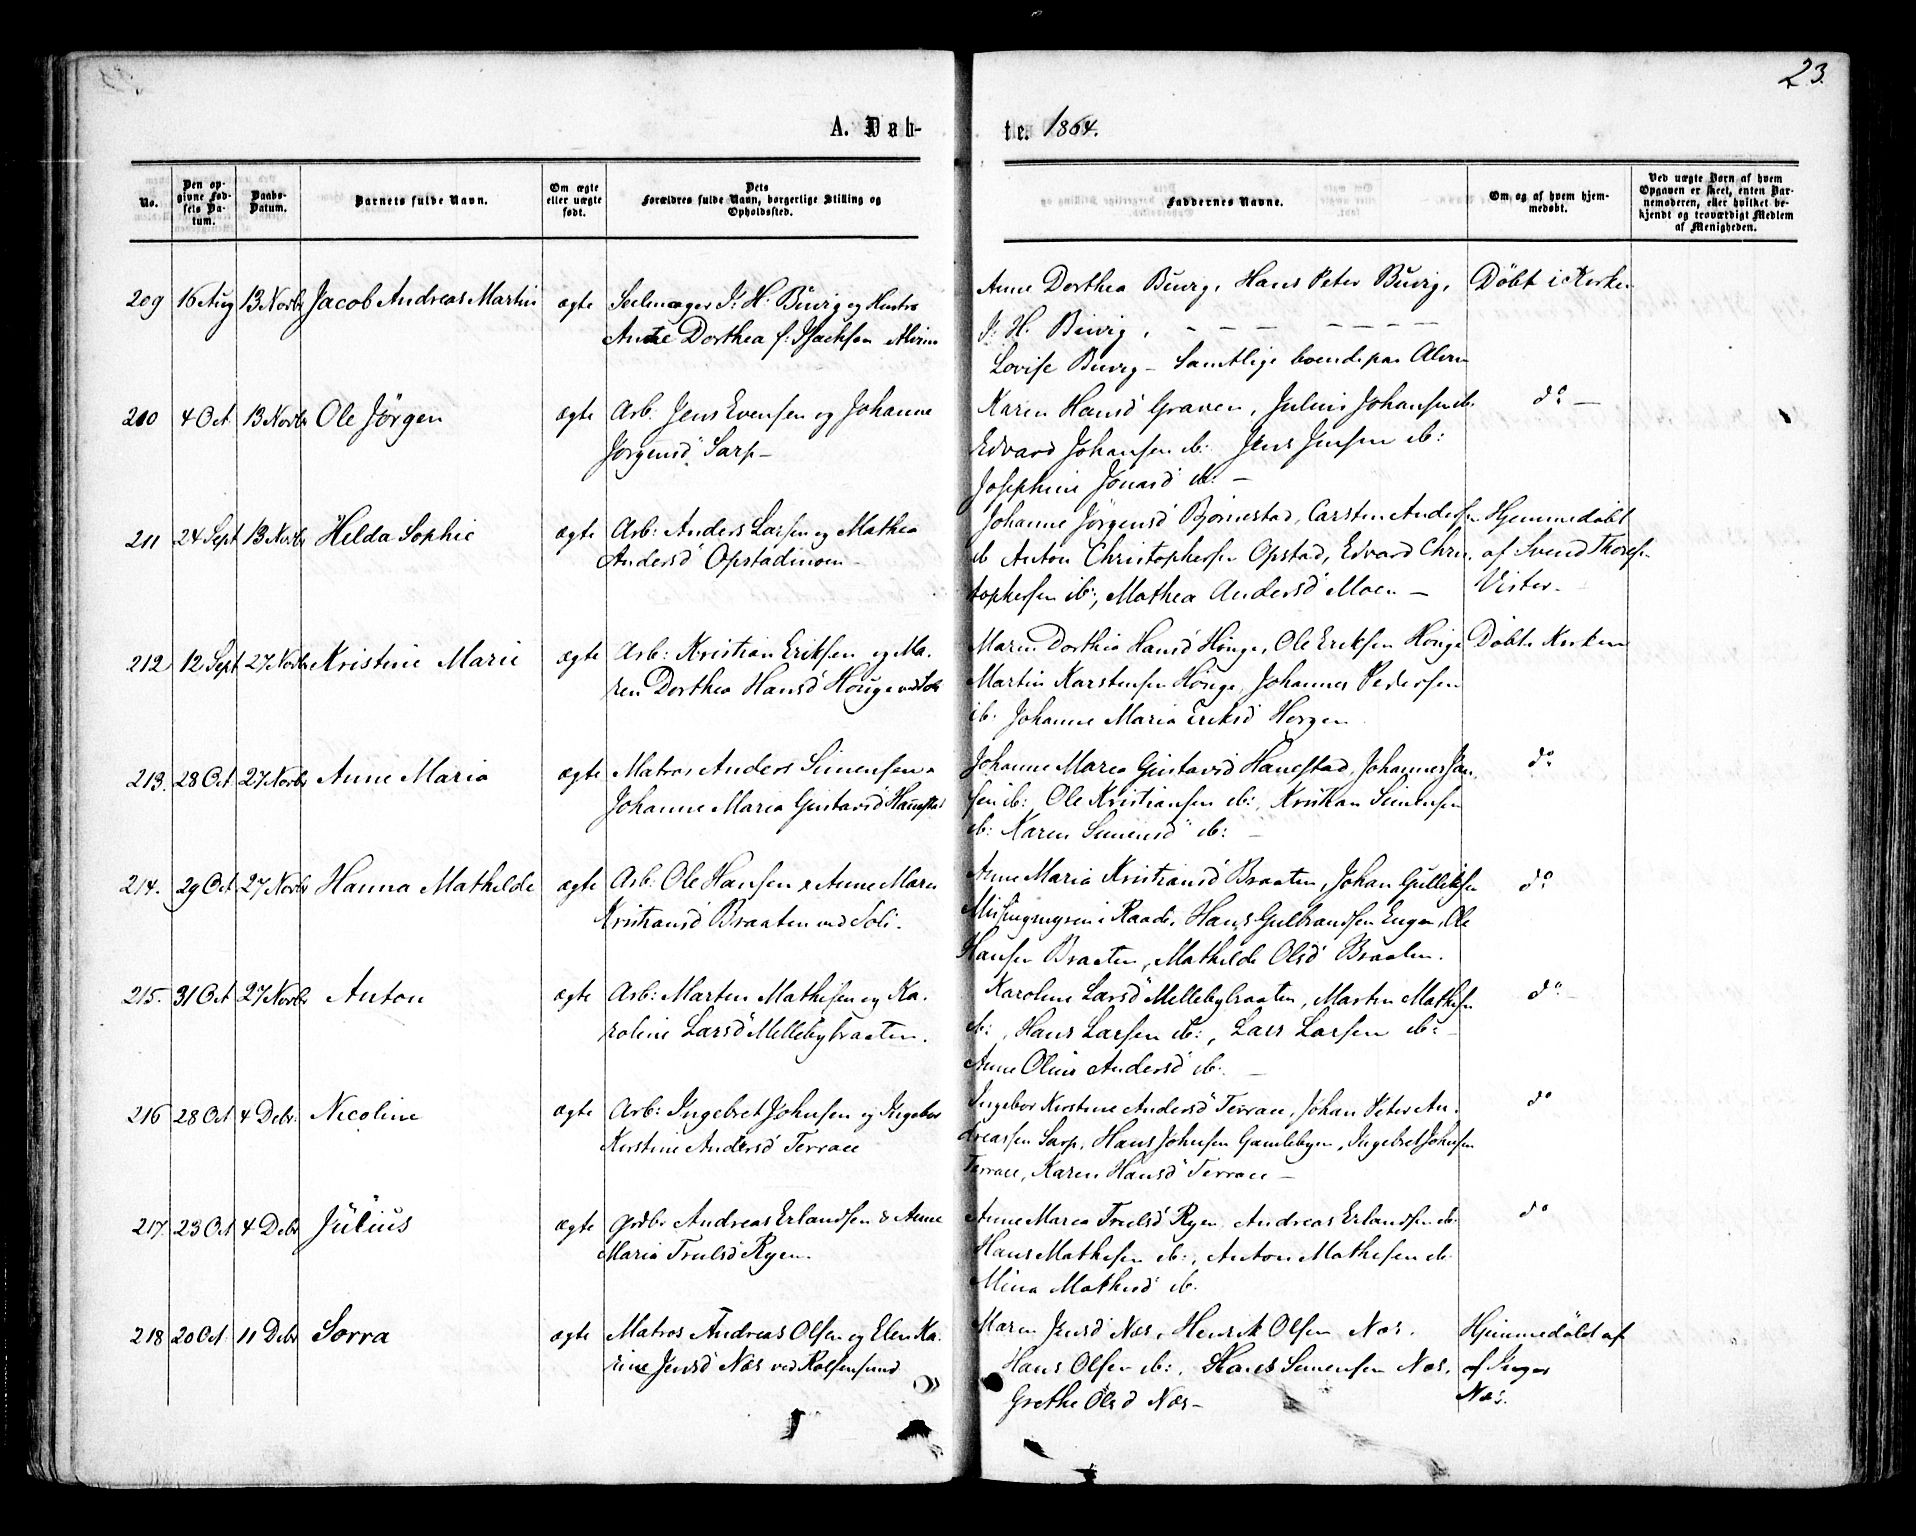 23.
A. Døb-
te. 1864.
No.
Den op-
givne Fød-
sels Da-
tum.
Daabs-
Datum.
Barnets fulde Navn.
Om ægte
eller uægte
født.
Dets
Forældres fulde Navn, borgerlige Stilling og
Opholdssted.
Faddernes Navne.
Om og af hvem hjem-
medøbt.
Ved uægte Børn af hvem
Opgaven er skeet, enten Bar-
nemoderen, eller hvilket be-
kjendt og troværdigt Medlem
af Menigheden.
209 16 Aug 13 Novbr Jacob Andreas Martin ægte
J. H. Buvig og Hustru
Anne Dorthea f. Isachsen
Anne Dorthea Buvig, Hans Peter Buvig,
J. H. Buvig, – – – – – – –
Lovise Buvig – Samtlige boende paa
Døbt i Kirken
210 4 Oct 13 Novbr Ole Jörgen ægte
Arb: Jens Evensen og Johanne
Jörgensd Sarp –
Karen Hansd Graven, Julius Johansen ib.
Edvard Johansen ib. Jens Jensen ib:
Josephine Jonasd ib: –
do –
211 24 Sept 13 Novbr Helda Sophie ægte
Arb: Anders Larsen og Mathea
Andersd Opstadmoen –
Johanne Jörgensd Bjørnestad, Carsten Andersen
ib Anton Christophersen Opstad, Edvard Chris
tophersen ib:, Mathea Andersd Moen –
Hjemmedøbt
af Svend Thoresen
Vister. –
212 12 Sept 27 Novbr Kristine Marie ægte
Arb: Kristian Eriksen og Ma-
ren Dorthea Hansd Houge ved Soli
Maren Dorthea Hansd Houge, Ole Eriksen Houge
Martin Karstensen Houge, Johannes Pedersen
ib: Johanne Maria Eriksd Horgen
Døbt i Kirken
213. 28 Oct 27 Novbr Anne Maria ægte
Matros Anders Simensen &
Johanne Maria Gustavsd Hanestad
Johanne Maria Gustavsd Hanestad, Johannes Jan-
sen ib: Ole Kristiansen ib:, Kristian Simensen
ib: Karen Simensd ib: –
do
214. 29 Oct 27 Novbr Hanna Mathilde ægte
Arb: Ole Hansen & Anne Maria
Kristiansd Braaten ved Soli.
Anne Maria Kristiansd Braaten, Johan Gulliksen
i Raade, Hans Gulbrandsen Engen, Ole
Hansen Braaten, Mathilde Olsd Braaten.
do
215. 31 Oct 27 Novbr Anton ægte
Arb: Marten Mathisen og Ka-
roline Larsd Mellebybraaten.
Karoline Larsd Mellebybraaten, Marten Mathisen
ib:, Hans Larsen ib:, Lars Larsen ib: –
Anne Oline Andersd ib. –
do –
216 28 Oct 4 Debr. Nicoline ægte
Arb: Ingebret Johnsen og Ingebor
Kirstine Andersd Terrace
Ingebor Kirstine Andersd Terrace, Johan Peter An-
dreassen Sarp, Hans Johnsen Gamlebyen, Ingebret Johnsen
Terrace, Karen Hansd Terrace –
do
217. 23 Oct 4 Debr Julius ægte
Grdbr Andreas Erlandsen & Anne
Maria Trulsd Ryen
Anne Maria Trulsd Ryen, Andreas Erlandsen ib.
Hans Mathisen ib:, Anton Mathisen ib
Mina Mathisd ib.
do
218 20 Oct. 11 Debr Sorra ægte
Matros Andreas Olsen og Elen Ka-
rine Jensd Næs ved Rolfsøsund
Maren Jensd Næs, Henrik Olsen Næs.
Hans Olsen ib:, Hans Simensen Næs,
Grethe Olsd Næs –
Hjemmedøbt af
af Inger
Næs.